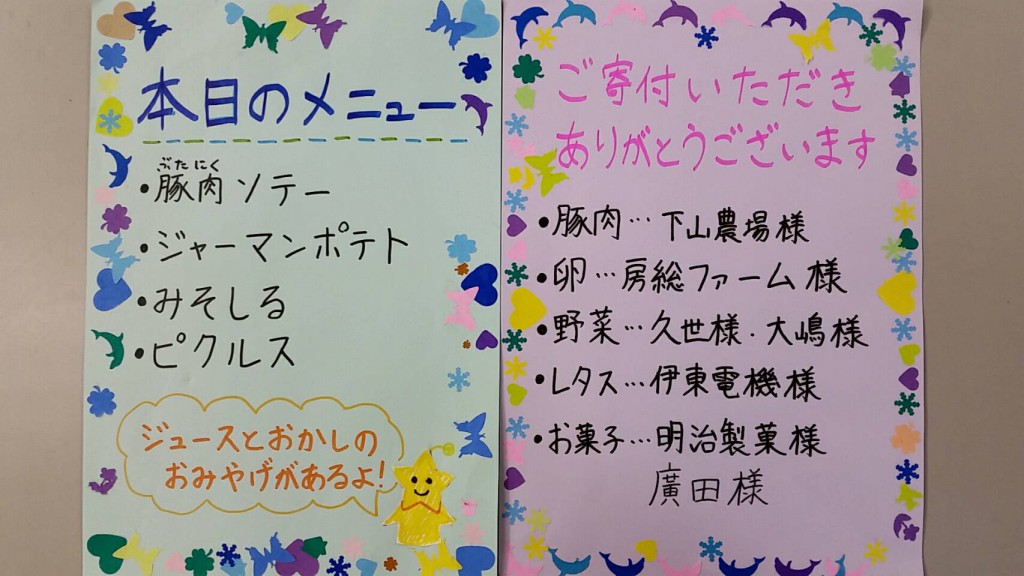 本日のメニュー
ぶたにく
・豚肉ソテー
・ジャーマンポテト
・みそしる
・ピクルス
ジュースとおかしの
おみやげがあるよ!
ご寄付いただき
ありがとうございます
・豚肉…下山農場様
・卵…房総ファーム様
・野菜…久世様・大嶋様
・レタス…伊東電機様
・お菓子…明治製菓様
廣田様